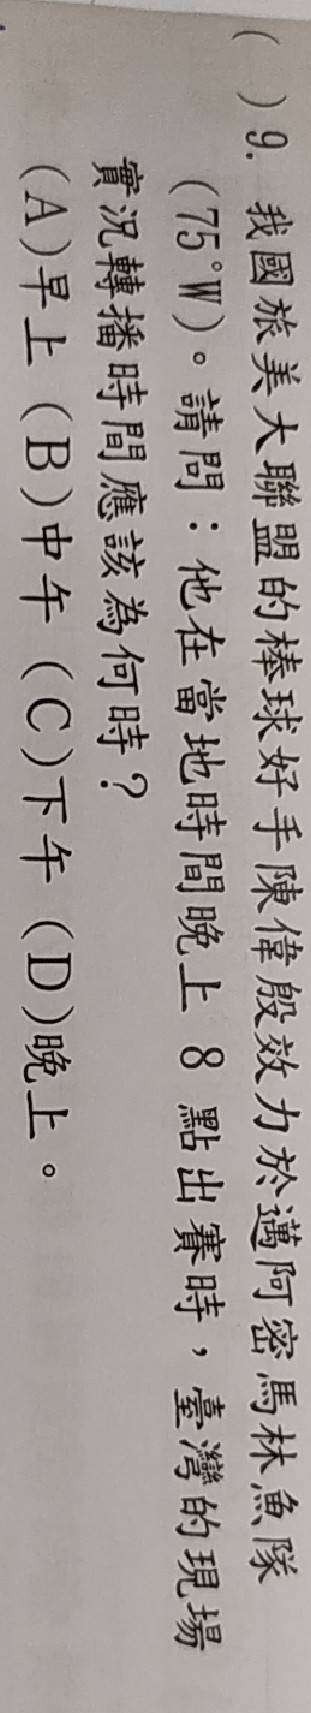 ( )9. 我國旅美大聯盟的棒球好手陳偉殷效力於邁阿密馬林魚隊
(75°W)。請問：他在當地時間晚上 8 點出賽時，臺灣的現場
實況轉播時間應該為何時？
(A)早上 (B)中午 (C)下午 (D)晚上。